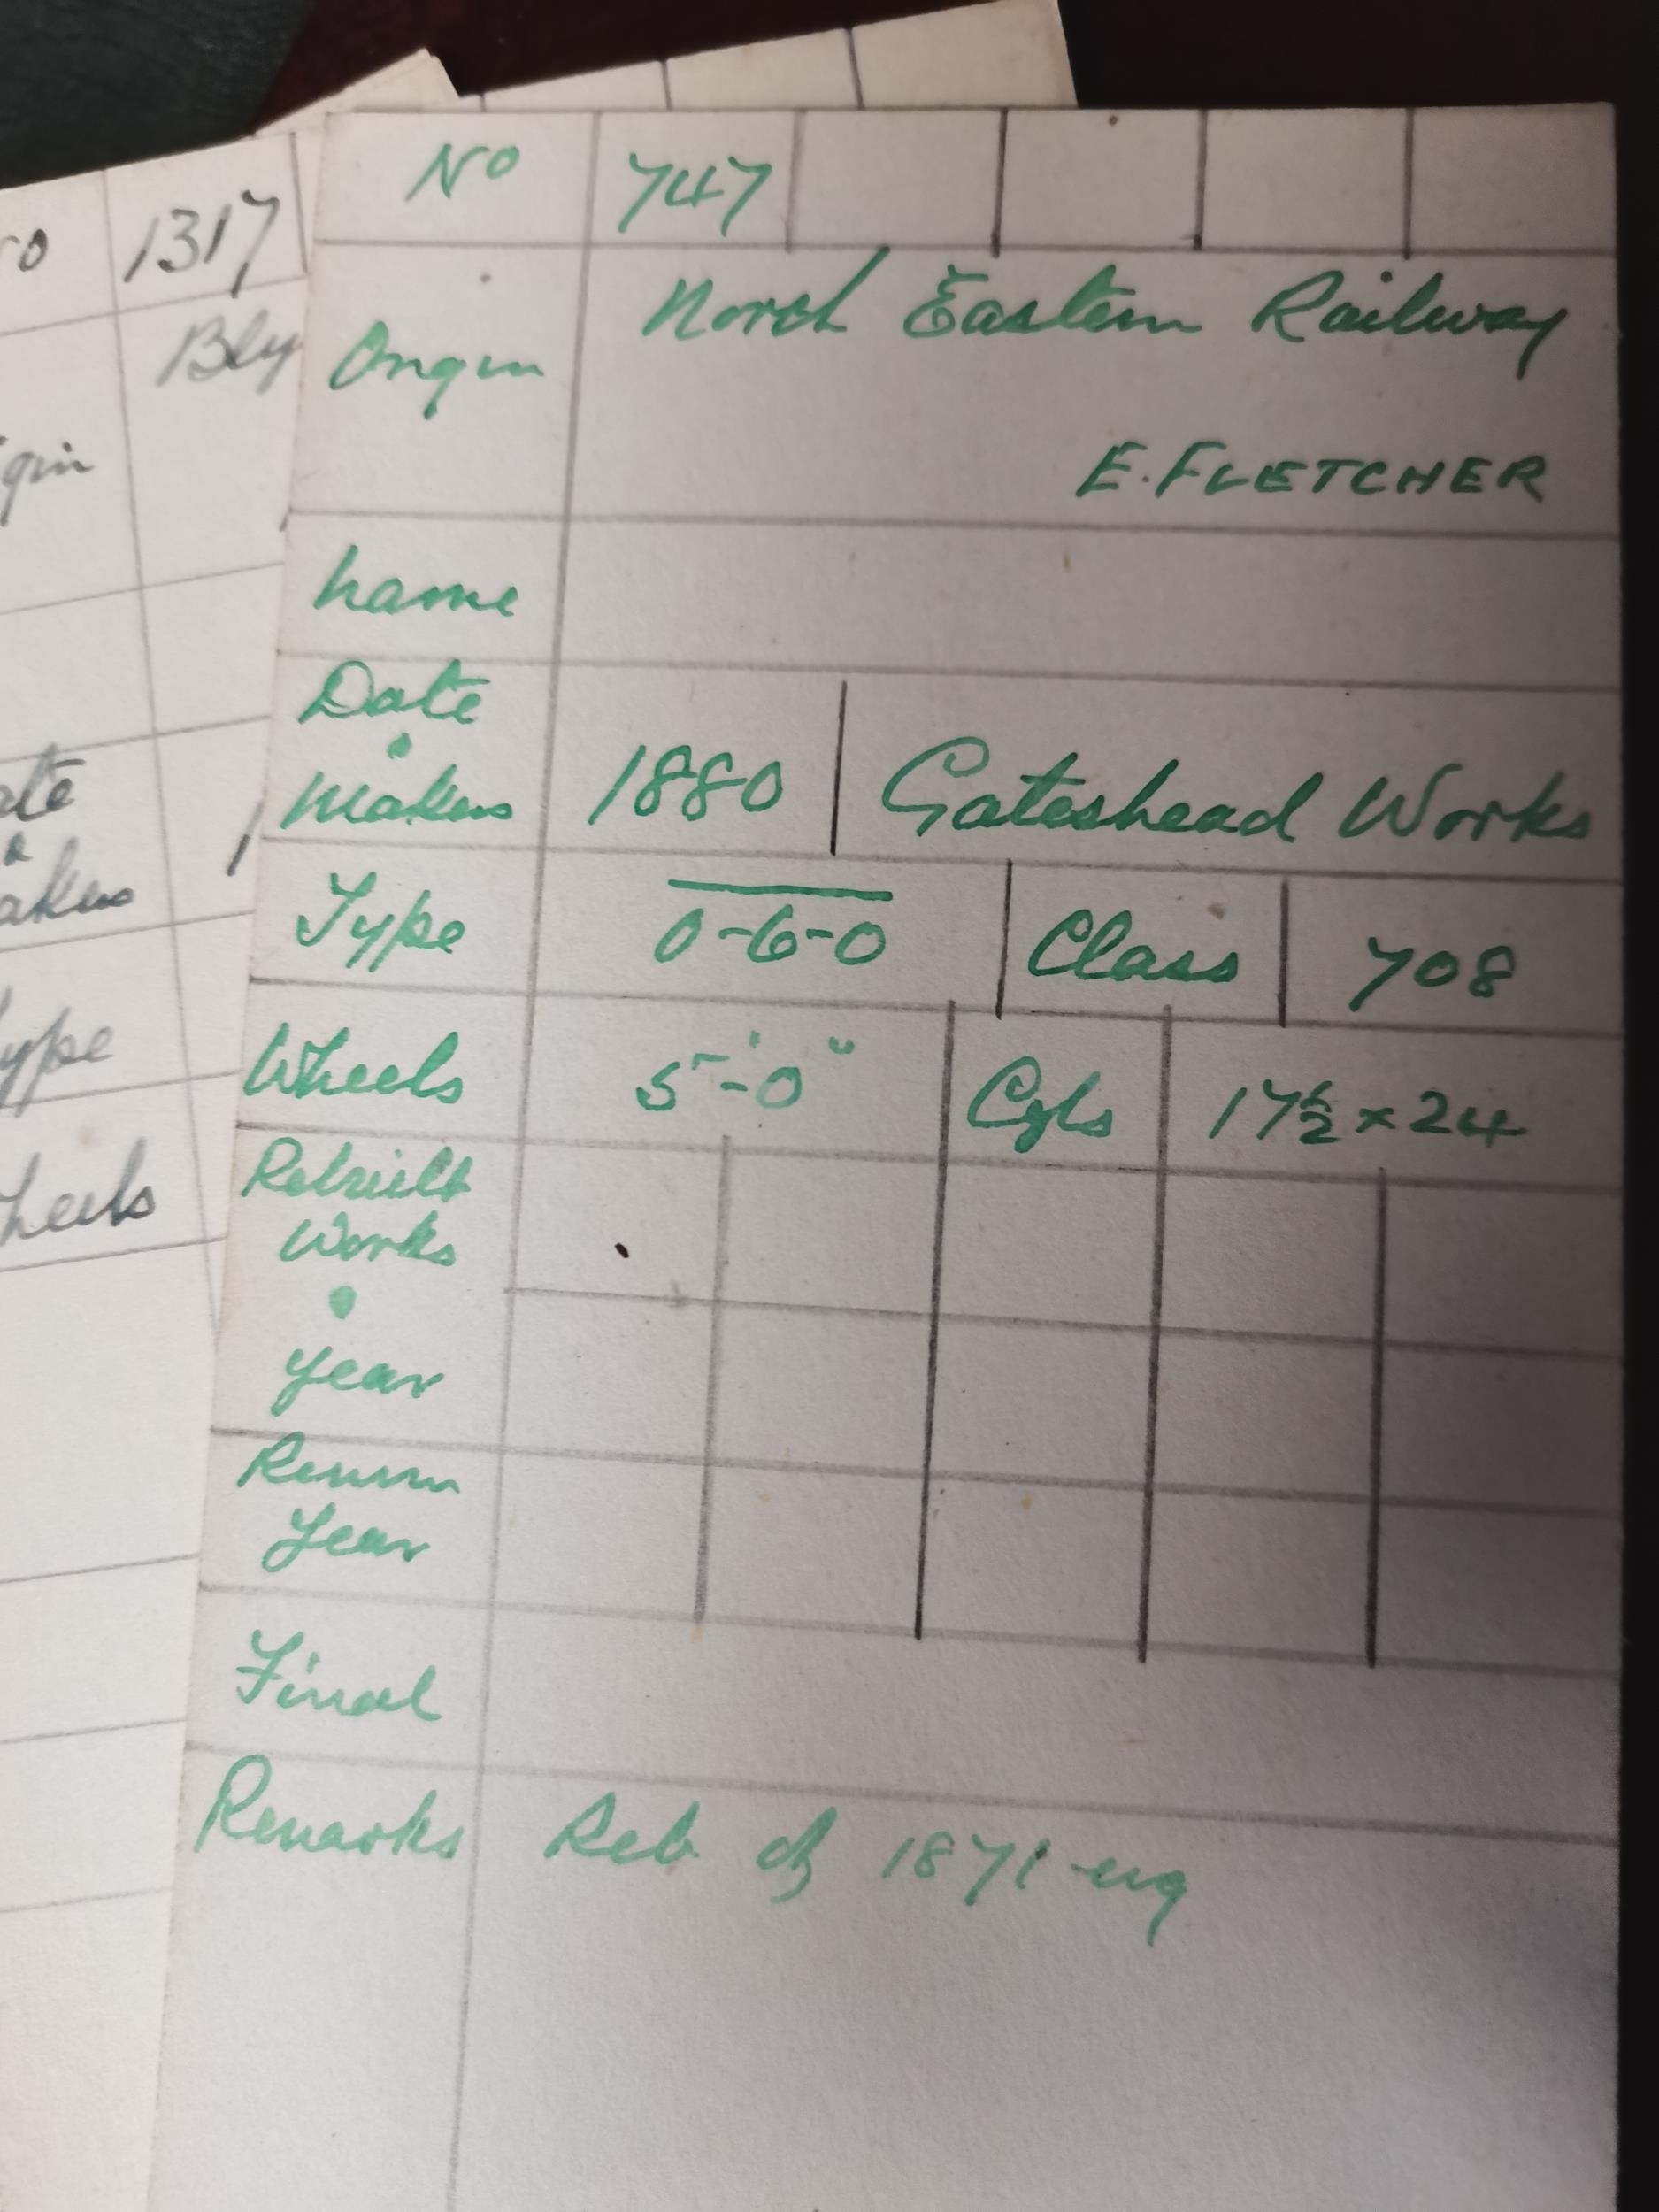 No 747
North Eastern Railway
Origin
E. FLETCHER
Name
Date
&
Makers 1880 Gateshead Works
Type 0-6-0 Class 708
Wheels 5'-0" Cyls 17½ x 24
Rebuilt
Works
&
Year
Renum
Year
Final
Remarks Reb of 1871 eng
ro 1317
Bly
igin
ate
&
akers
ype
heels